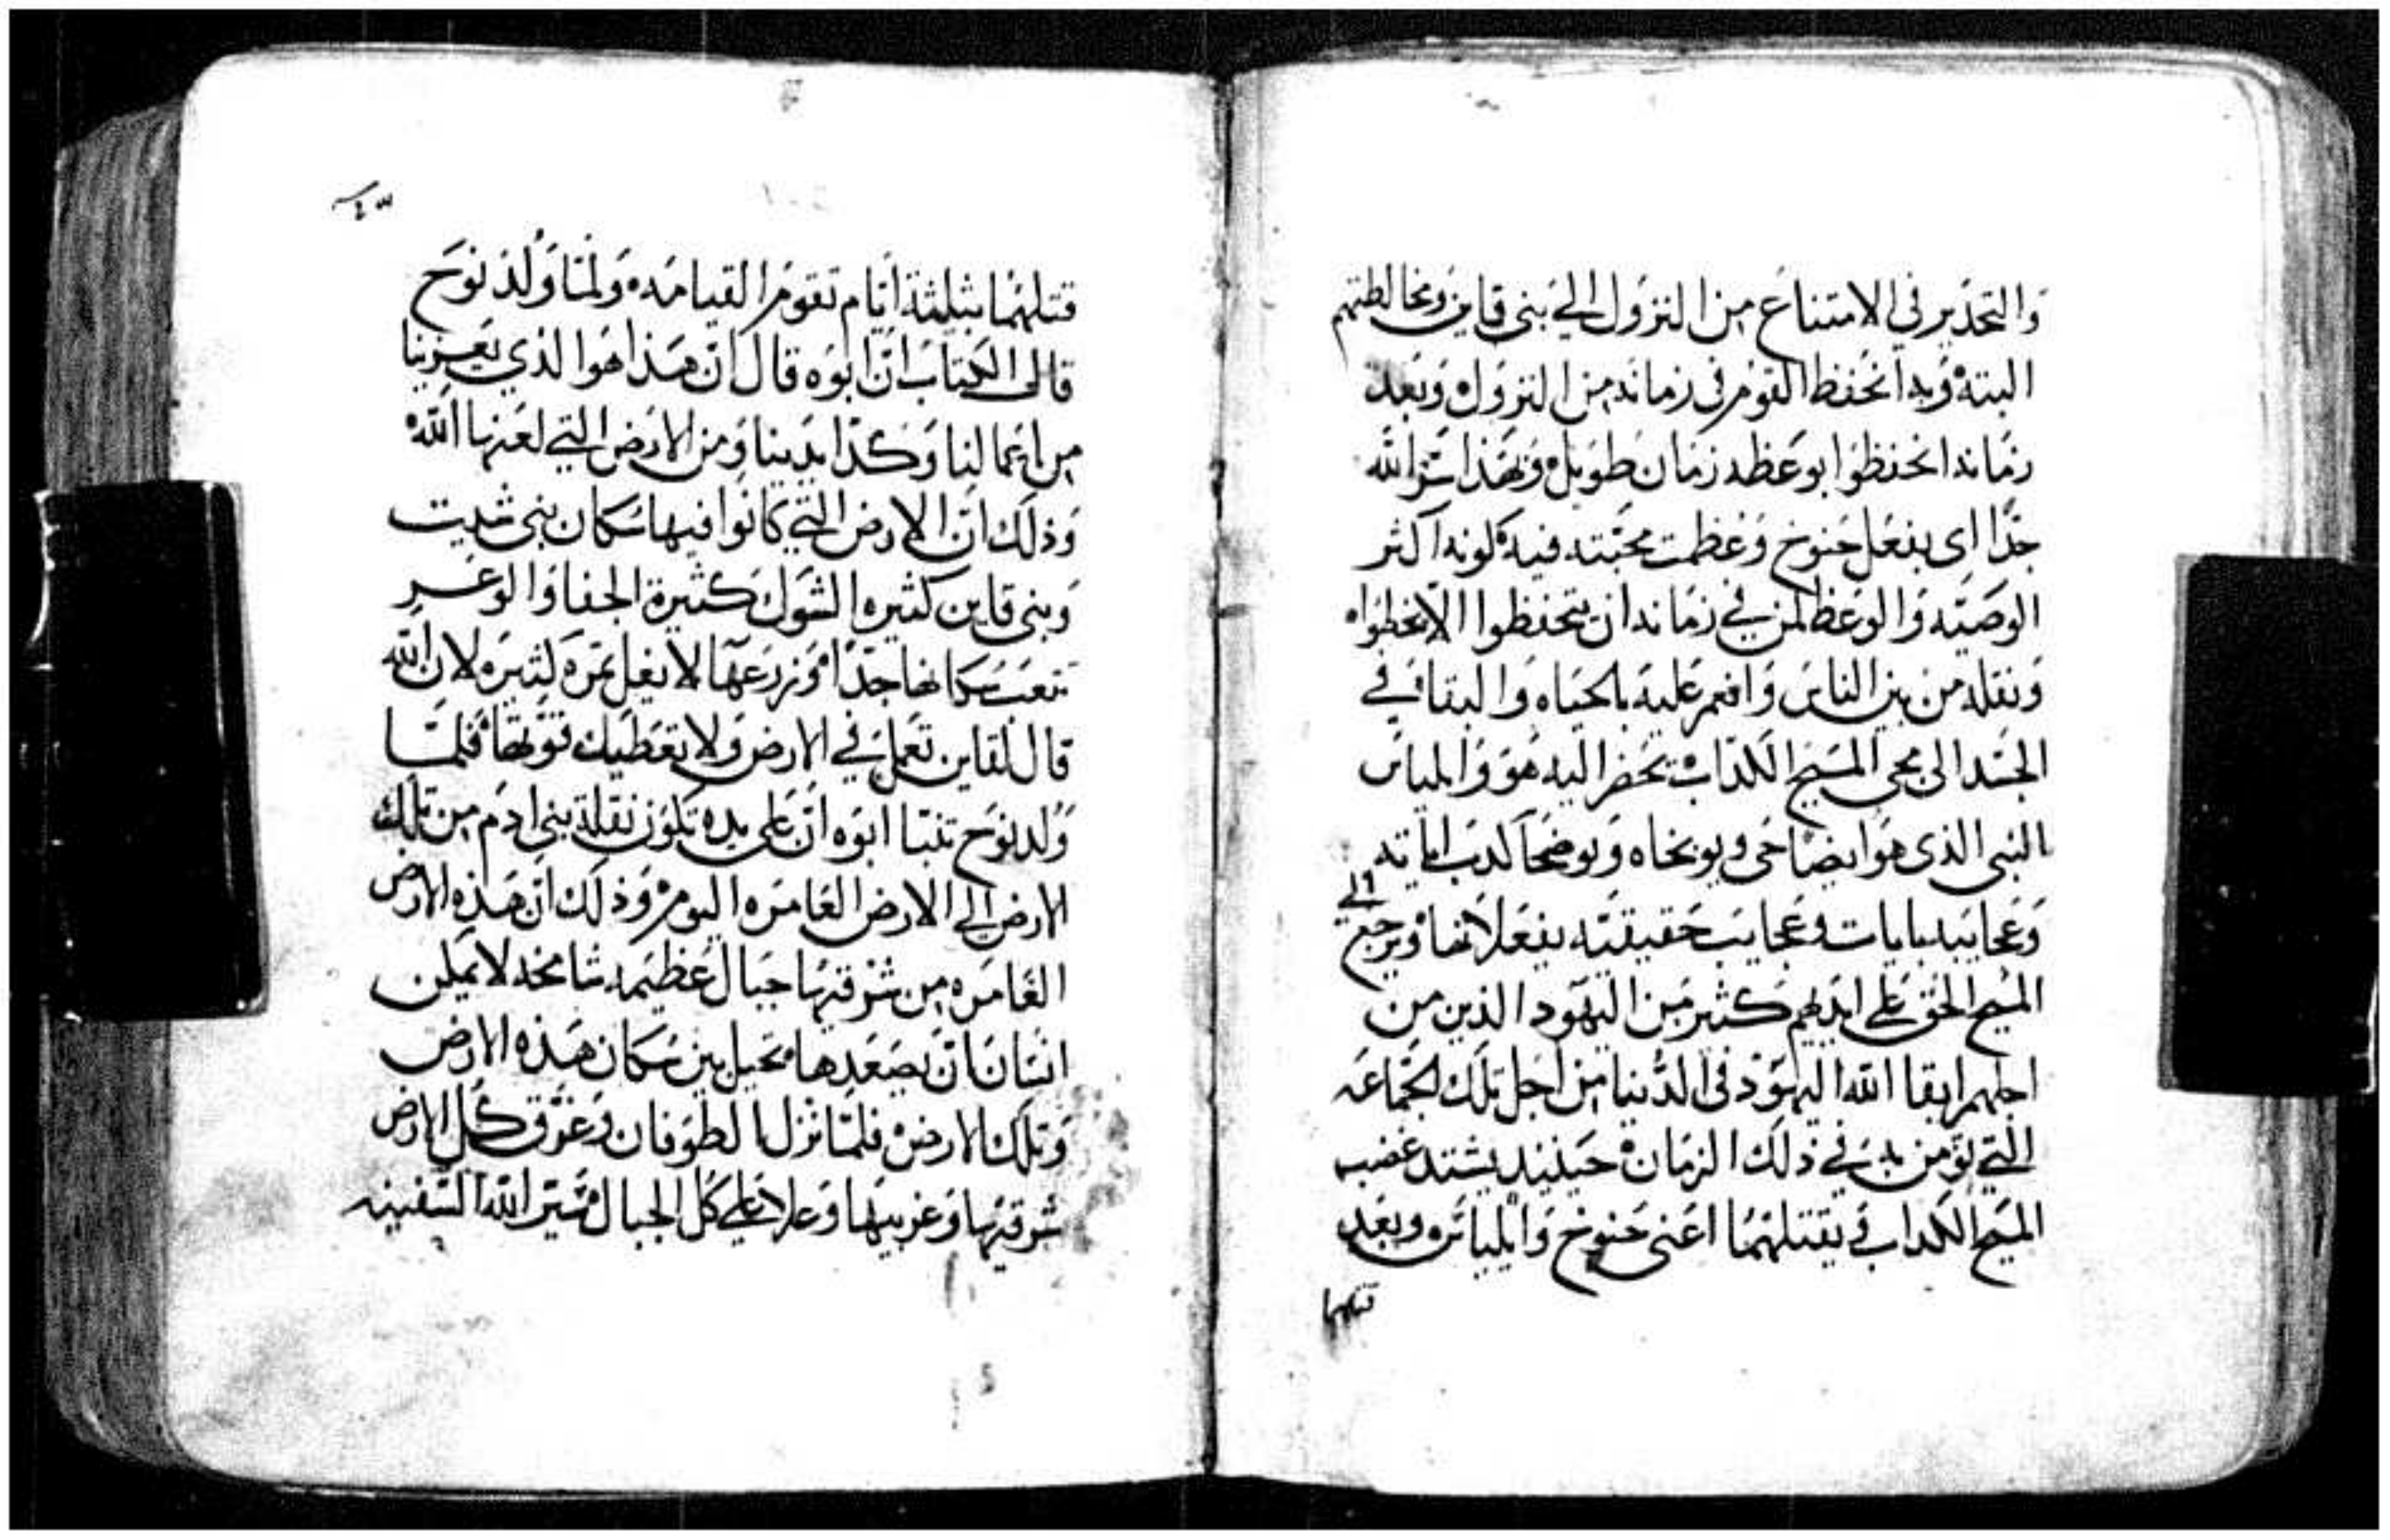 وَالتحَذير في الامتناع من النزول الي بني قاين ومخالطتهم
البتة وبدا تحفظ القوم في زمانه من النزول وبعد
زمانه انحفظوا بوعظه زمان طويل وبهذا سرّ الله
جدّا اي بفعل حنوخ وعظمت محبّته فيه لونه اكثر
الوصيّه والوعظ لمن في زمانه ان يتحفظوا الا يخطوا
ونقله من بين الناس وانعم عليه بالحياه والبقا في
الجسد الى مجي المسيح الكداب يحضر اليه هو والياس
النبي الذي هو ايضا حي ويوبخاه ويوضحا كدب اياته
وعجايبه بايات وعجايب حقيقيّه يفعلانها ويرجع الي
المسيح الحق علي ايديهم كثير من اليهود الذين من
اجلهم ابقا الله اليهود في الدنيا من اجل تلك الجماعه
التي تومن به في ذلك الزمان حينيد يشتد غضب
المسيح الكداب ويقتلهما اعني حنوخ وايلياس وبعد
قتلهما
قتلهما بثلثة ايّام تقوم القيامه ولمّا ولد نوح
قال الكتاب انّ ابوه قال انّ هذا هوا الذي يعزينا
من اعمالنا وكدّ ايدينا ومن الارض التي لعنها الله
وذلك ان الارض التي كانوا فيها سكان بني شيت
وبني قاين كثيره الشوك كثيرة الجفا والوعر
تتعب سكانها جدّا وزرعها لا يغل ثمره كثيره لان الله
قال لقاين تعمل في الارض ولا تعطيك قوتها فلمّا
ولد نوح تنبّا ابوه انّ علي يده تكون نقلة بني ادم من تلك
الارض الي الارض العامره اليوم وذلك ان هذه الارض
العامره من شرقيها جبال عظيمه شامخه لا يمكن
انسان ان يصعدها تحيل بين سكان هذه الارض
وتلك الارض فلمّا نزل الطوفان وغرّق كل الارض
شرقيها وغربيها وعلا علي كل الجبال سيّر الله السفينه